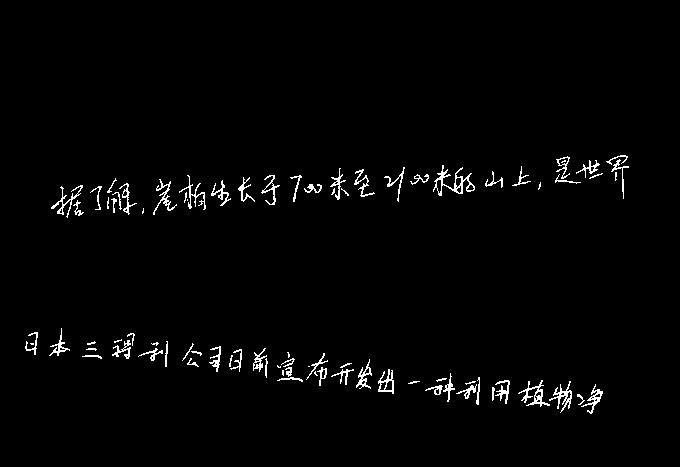 据了解，崖柏生长于700米至2100米的山上，是世界
日本三得利公司日前宣布开发出一种利用植物净